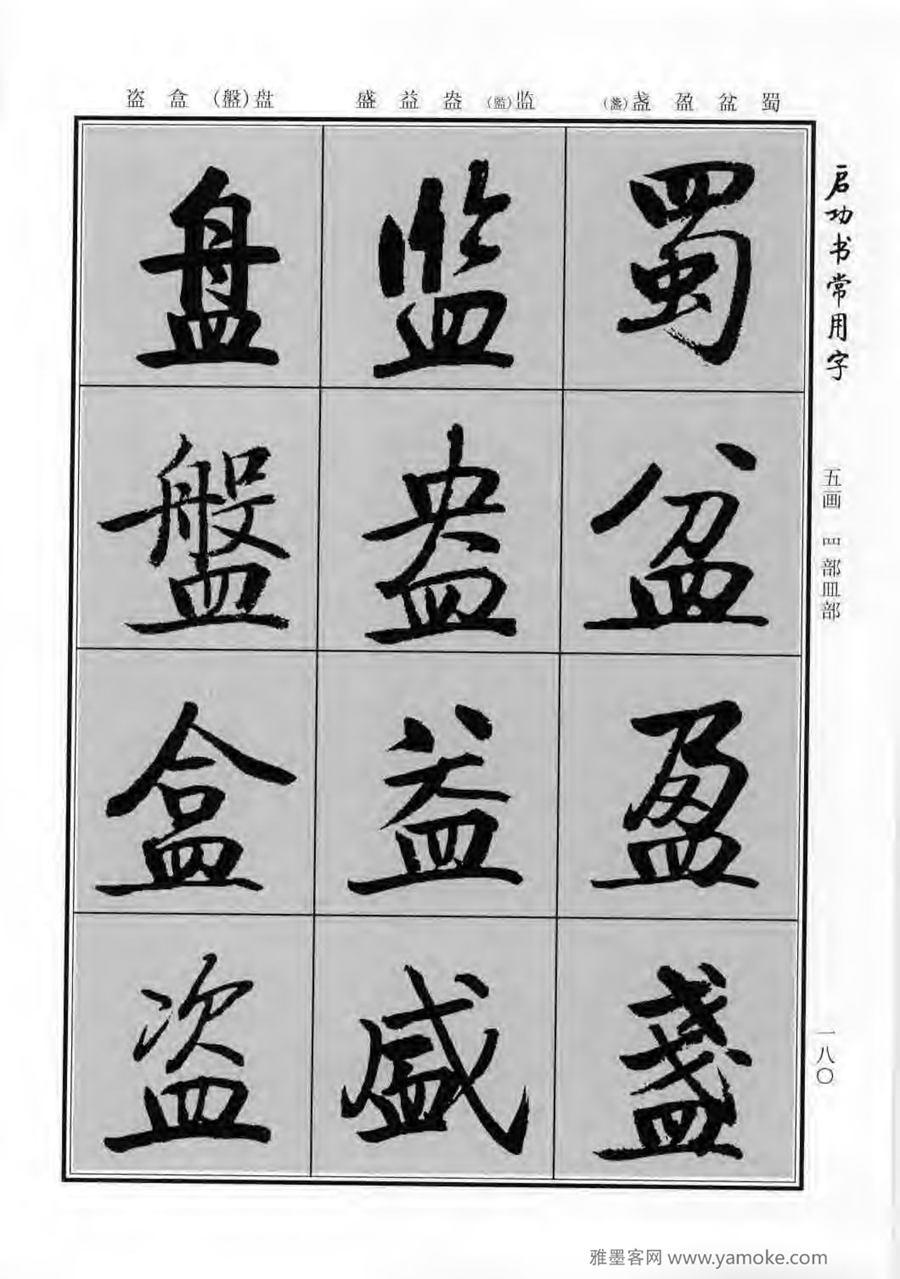 盗 盒 (盤)盘 盛 益 盎 (監)监 (盞)盏 盈 盆 蜀
启功书常用字
五画 罒部皿部
一八〇
蜀
盆
盈
盞
监
盎
益
盛
盘
盤
盒
盗
雅墨客网 www.yamoke.com